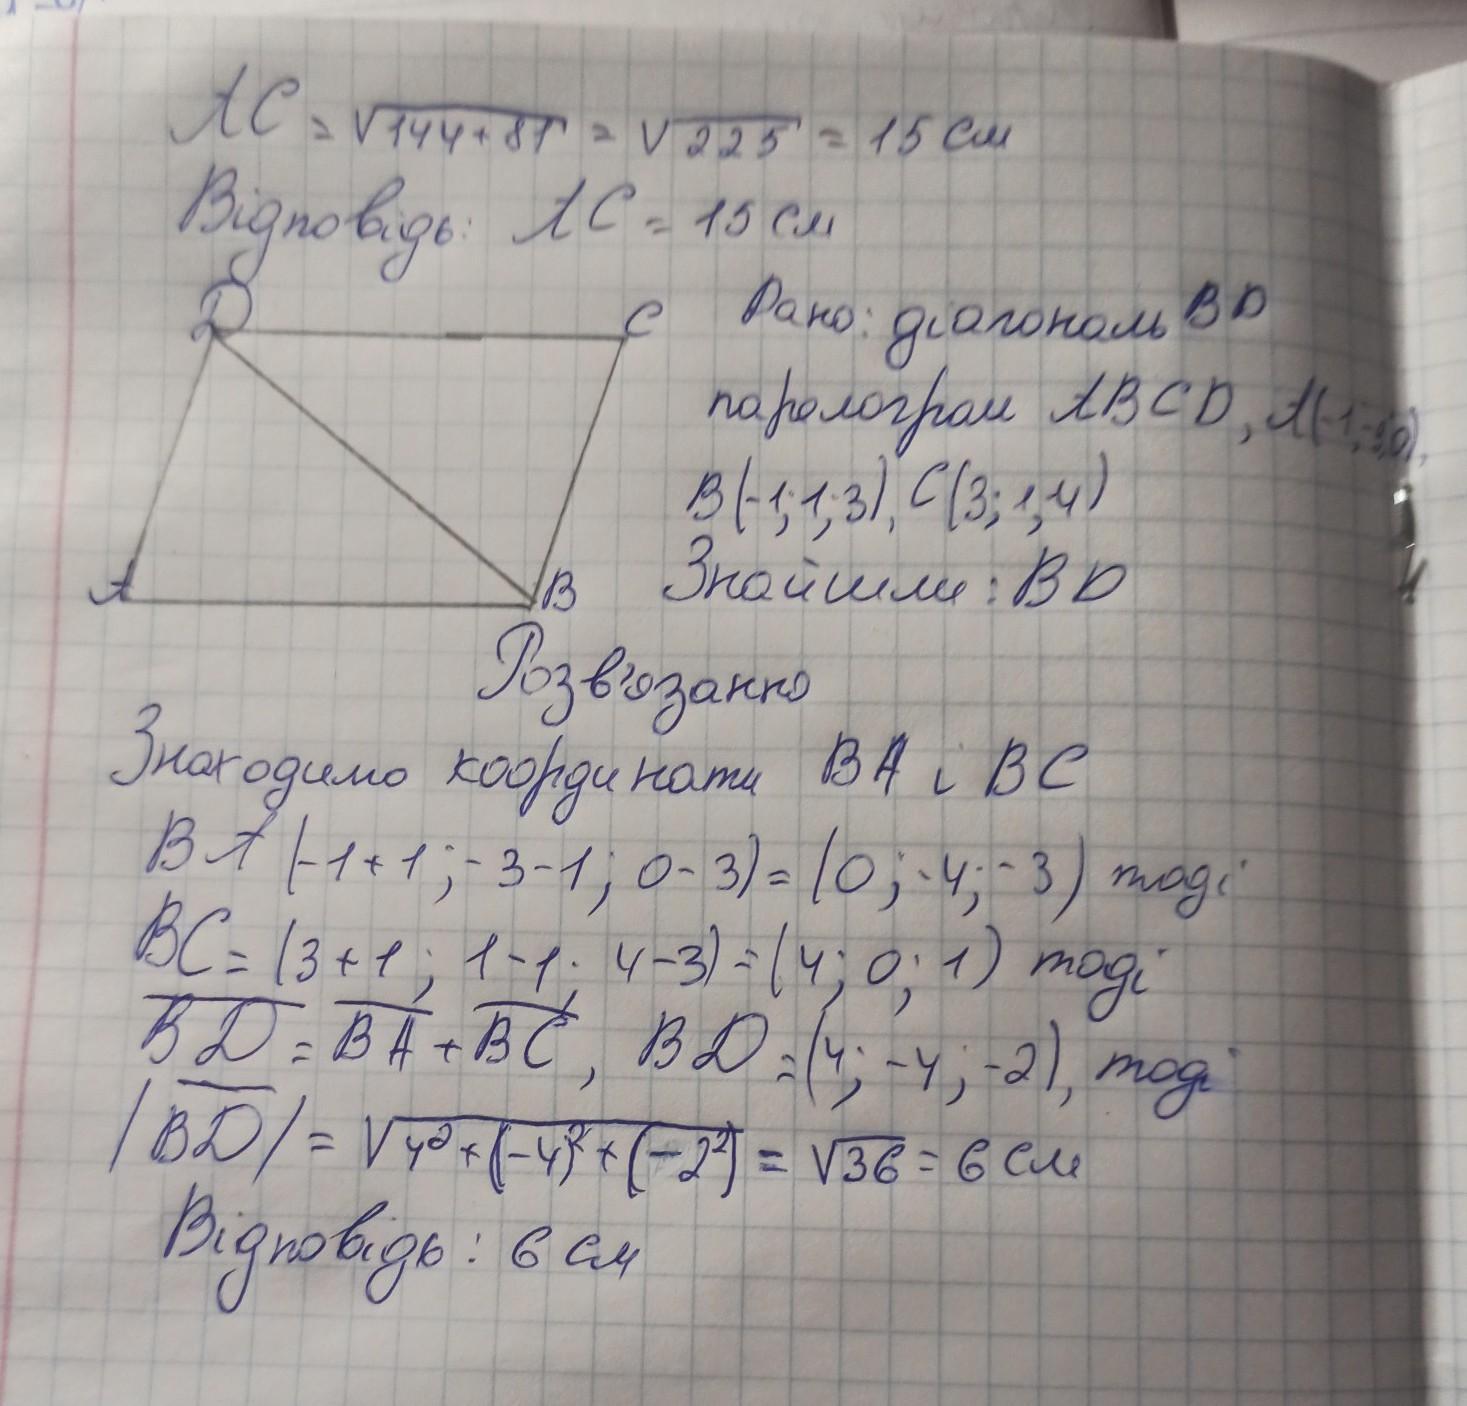 AC = √144+81 = √225 = 15 см
Відповідь: AC = 15 см
D C
Дано: діагональ BD
паролограм ABCD, A(-1;-3;0),
B(-1;1;3), C(3;1;4)
Знайшли: BD
A B
Розв'язання
Знаходимо координати BA і BC
BA (-1+1; -3-1; 0-3) = (0; -4; -3) тоді
BC = (3+1; 1-1; 4-3) = (4; 0; 1) тоді
BD = BA + BC, BD = (4; -4; -2), тоді
|BD| = √4²+(-4)²+(-2²) = √36 = 6 см
Відповідь: 6 см